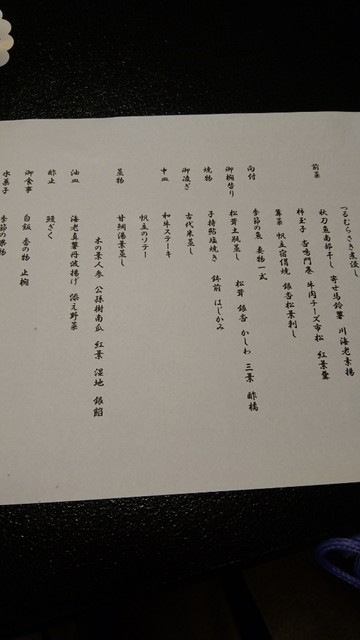 前菜
つるむらさき煮浸し
寄せ馬鈴薯 川海老素揚
秋刀魚南部干し 牛肉チーズ市松 紅葉麩
柿玉子 杏鳴門巻 銀杏松葉刺し
箸菜 帆立宿借焼
向付 季節の魚 妻物一式
御椀替り 松茸土瓶蒸し 松茸 銀杏 かしわ 三葉 酢橘
焼物 子持鮎塩焼き 鉾前 はじかみ
御凌ぎ 古代米蒸し
中皿 和牛ステーキ
帆立のソテー
蒸物 甘鯛湯葉蒸し
木の葉人参 公孫樹南瓜 紅葉 湿地 銀餡
油皿 海老真薯丹波揚げ 添え野菜
酢止 鰻ざく
御食事 白飯 香の物 止椀
水菓子 季節の果物